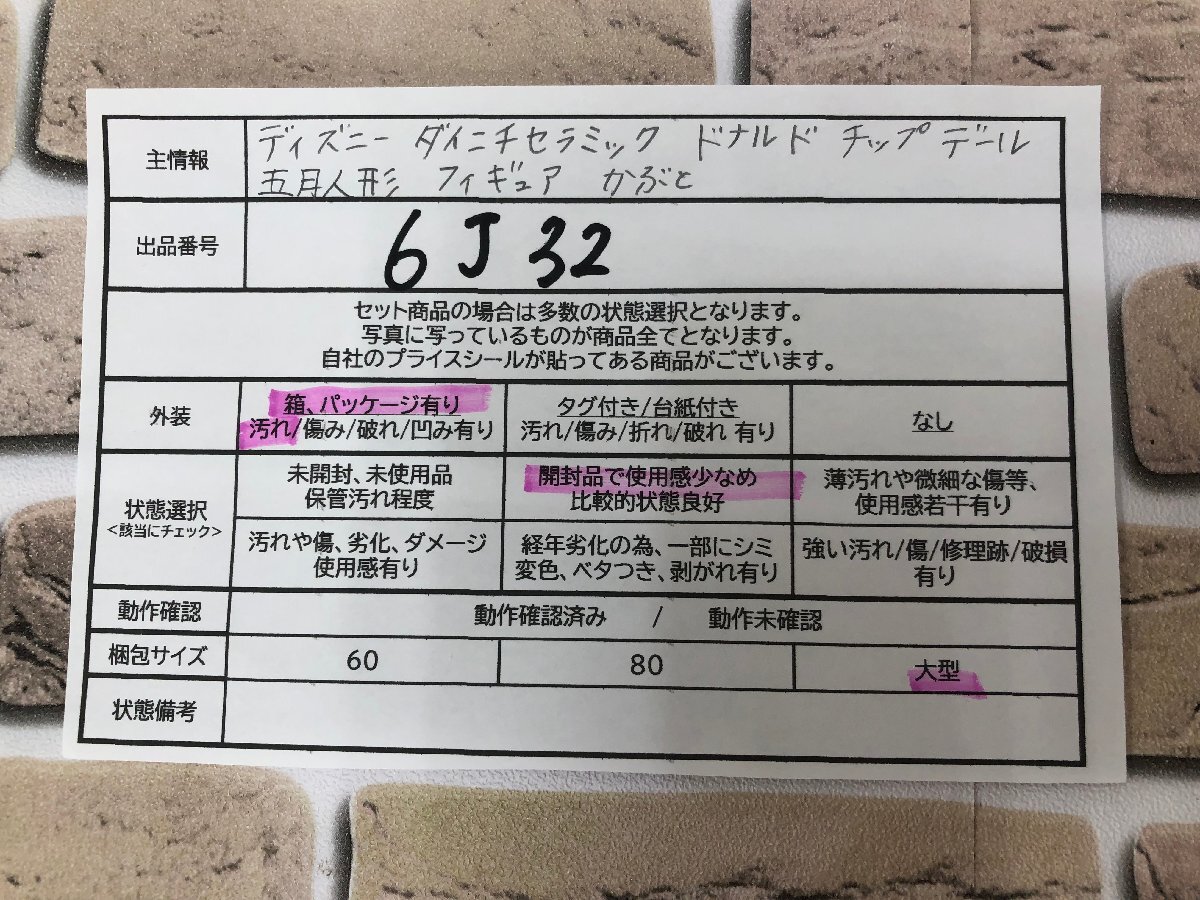 主情報
ディズニー ダイニチセラミック ドナルド チップ デール
五月人形 フィギュア かぶと
出品番号
6J32
セット商品の場合は多数の状態選択となります。
写真に写っているものが商品全てとなります。
自社のプライスシールが貼ってある商品がございます。
外装
箱、パッケージ有り
汚れ/傷み/破れ/凹み有り
タグ付き/台紙付き
汚れ/傷み/折れ/破れ 有り
なし
状態選択
<該当にチェック>
未開封、未使用品
保管汚れ程度
開封品で使用感少なめ
比較的状態良好
薄汚れや微細な傷等、
使用感若干有り
汚れや傷、劣化、ダメージ
使用感有り
経年劣化の為、一部にシミ
変色、ベタつき、剥がれ有り
強い汚れ/傷/修理跡/破損
有り
動作確認
動作確認済み / 動作未確認
梱包サイズ
60
80
大型
状態備考